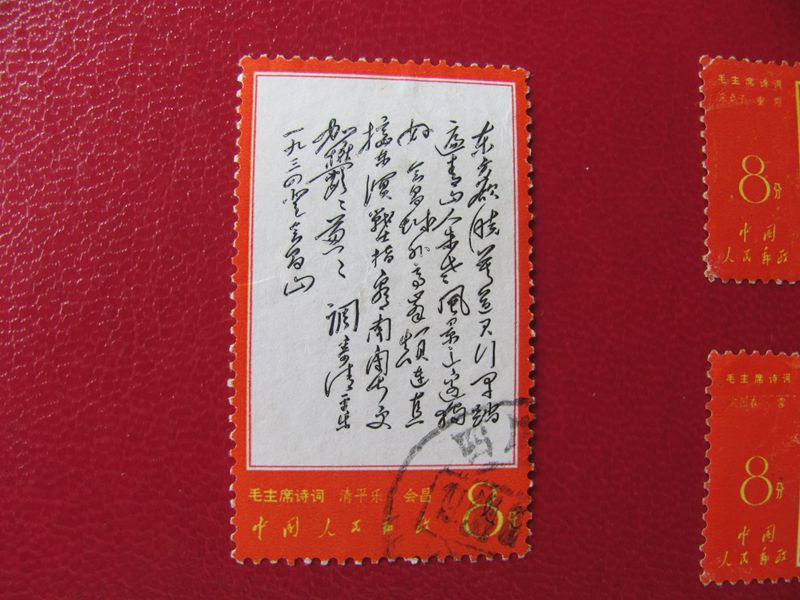 东方欲晓莫道君行早踏
遍青山人未老风景这边独
好会昌城外高峰颠连直
接东溟战士指看南粤更
加郁郁葱葱 调寄清平乐
一九三四登会昌山
毛主席诗词 清平乐 会昌
8分
中国人民邮政
毛主席诗词
8分
中国
人民邮政
毛主席诗词
沁园春 雪
8分
中国
人民邮政